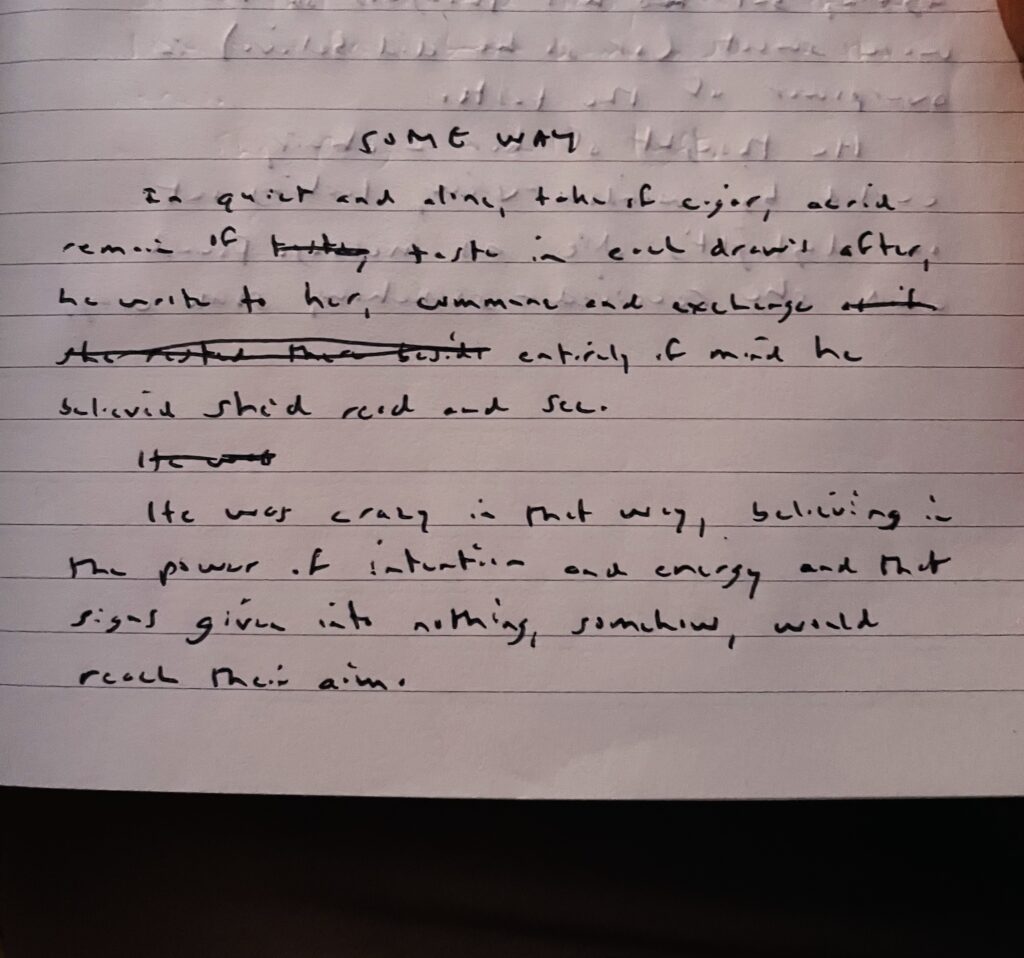 SOME WAY
In quiet and alone, take of cigar, acrid
remain of taste in each draw's after,
he write to her, commune and exchange
entirely of mind he
believed she'd read and see.
He was
He was crazy in that way, believing in
the power of intention and energy and that
signs given into nothing, somehow, would
reach their aim.